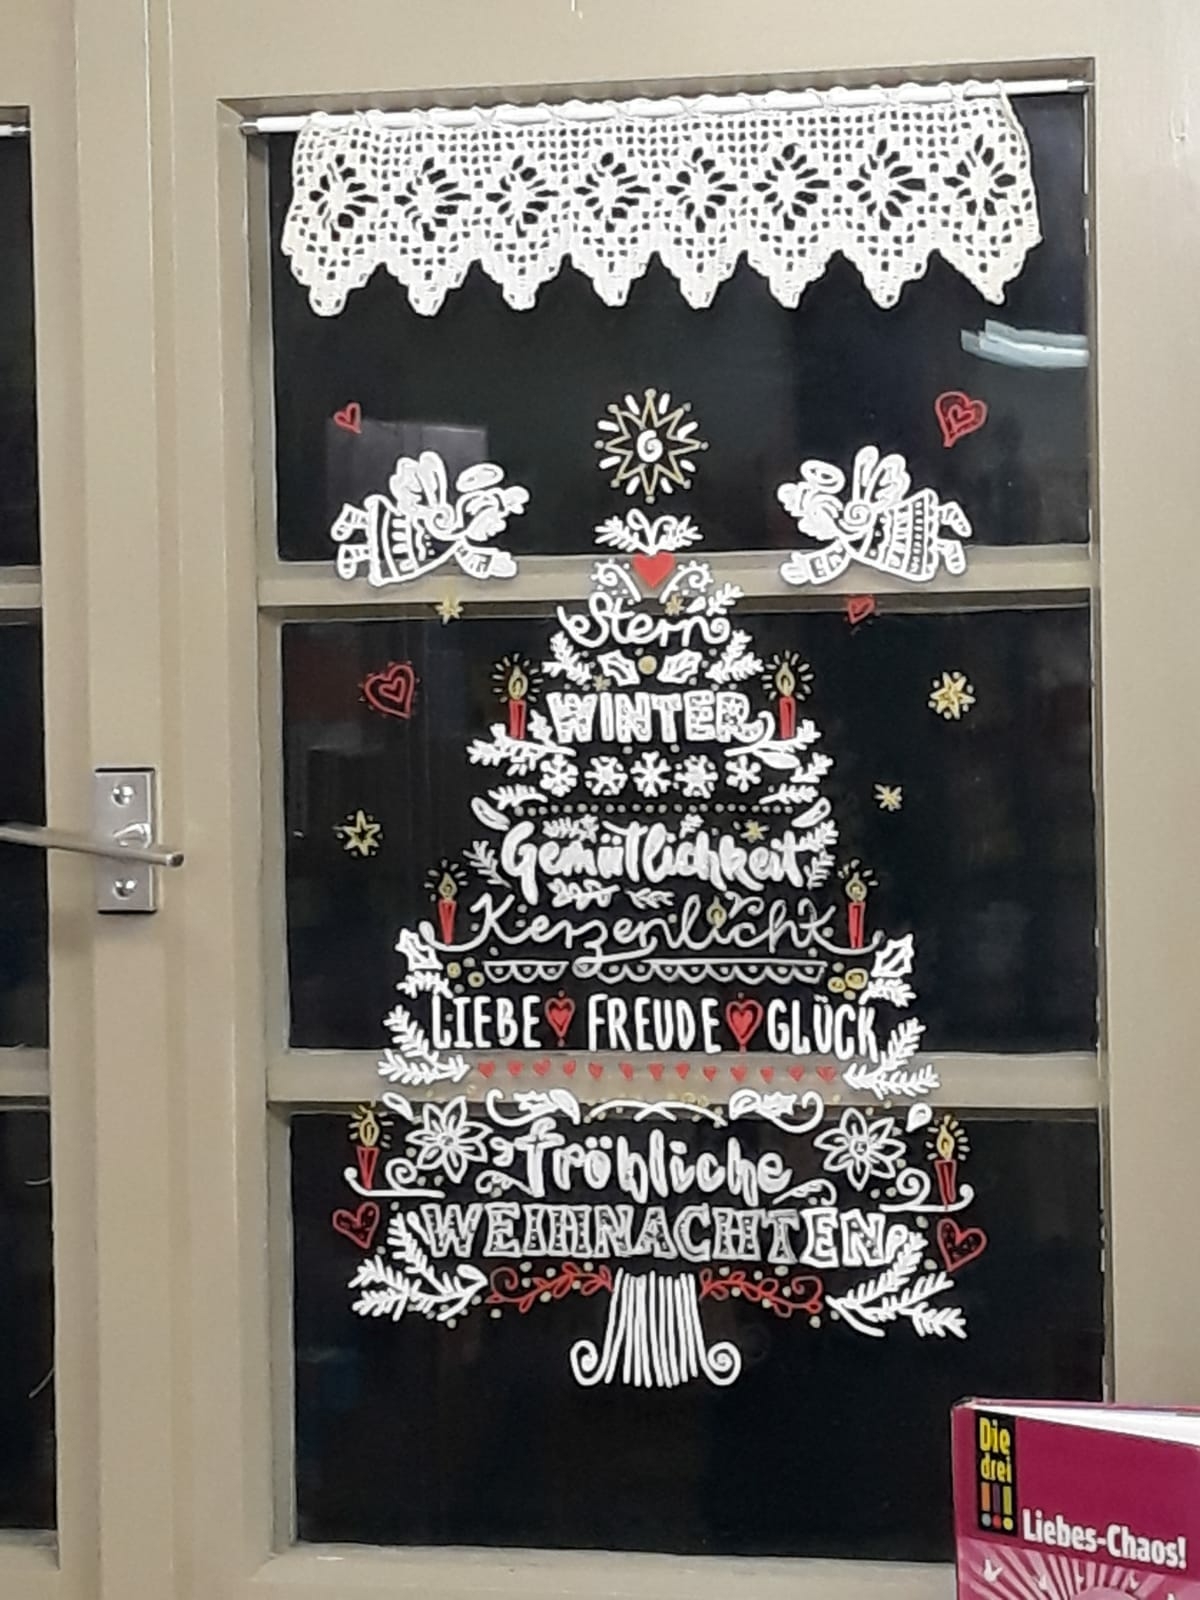 Stern
WINTER
Gemütlichkeit
Kerzenlicht
LIEBE FREUDE GLÜCK
Fröhliche
WEIHNACHTEN
Die
drei
!!!
Liebes-Chaos!